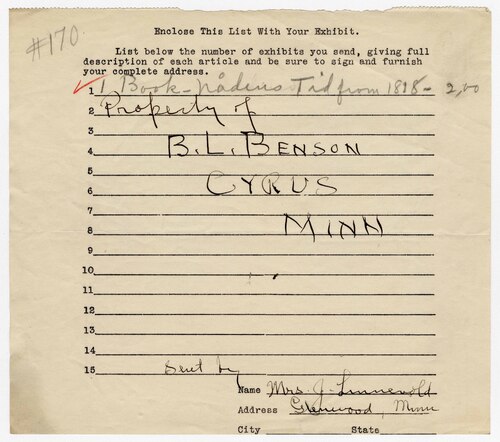 #170
Enclose This List With Your Exhibit.
List below the number of exhibits you send, giving full
description of each article and be sure to sign and furnish
your complete address.
1 1 Book - Nådens Tid from 1898 - 2,00
2 Property of
3
4 B. L. BENSON
5
6 CYRUS
7
8 MINN
9
10
11
12
13
14
15 Sent by
Name Mrs. J. Linnevold
Address Glenwood, Minn
City State